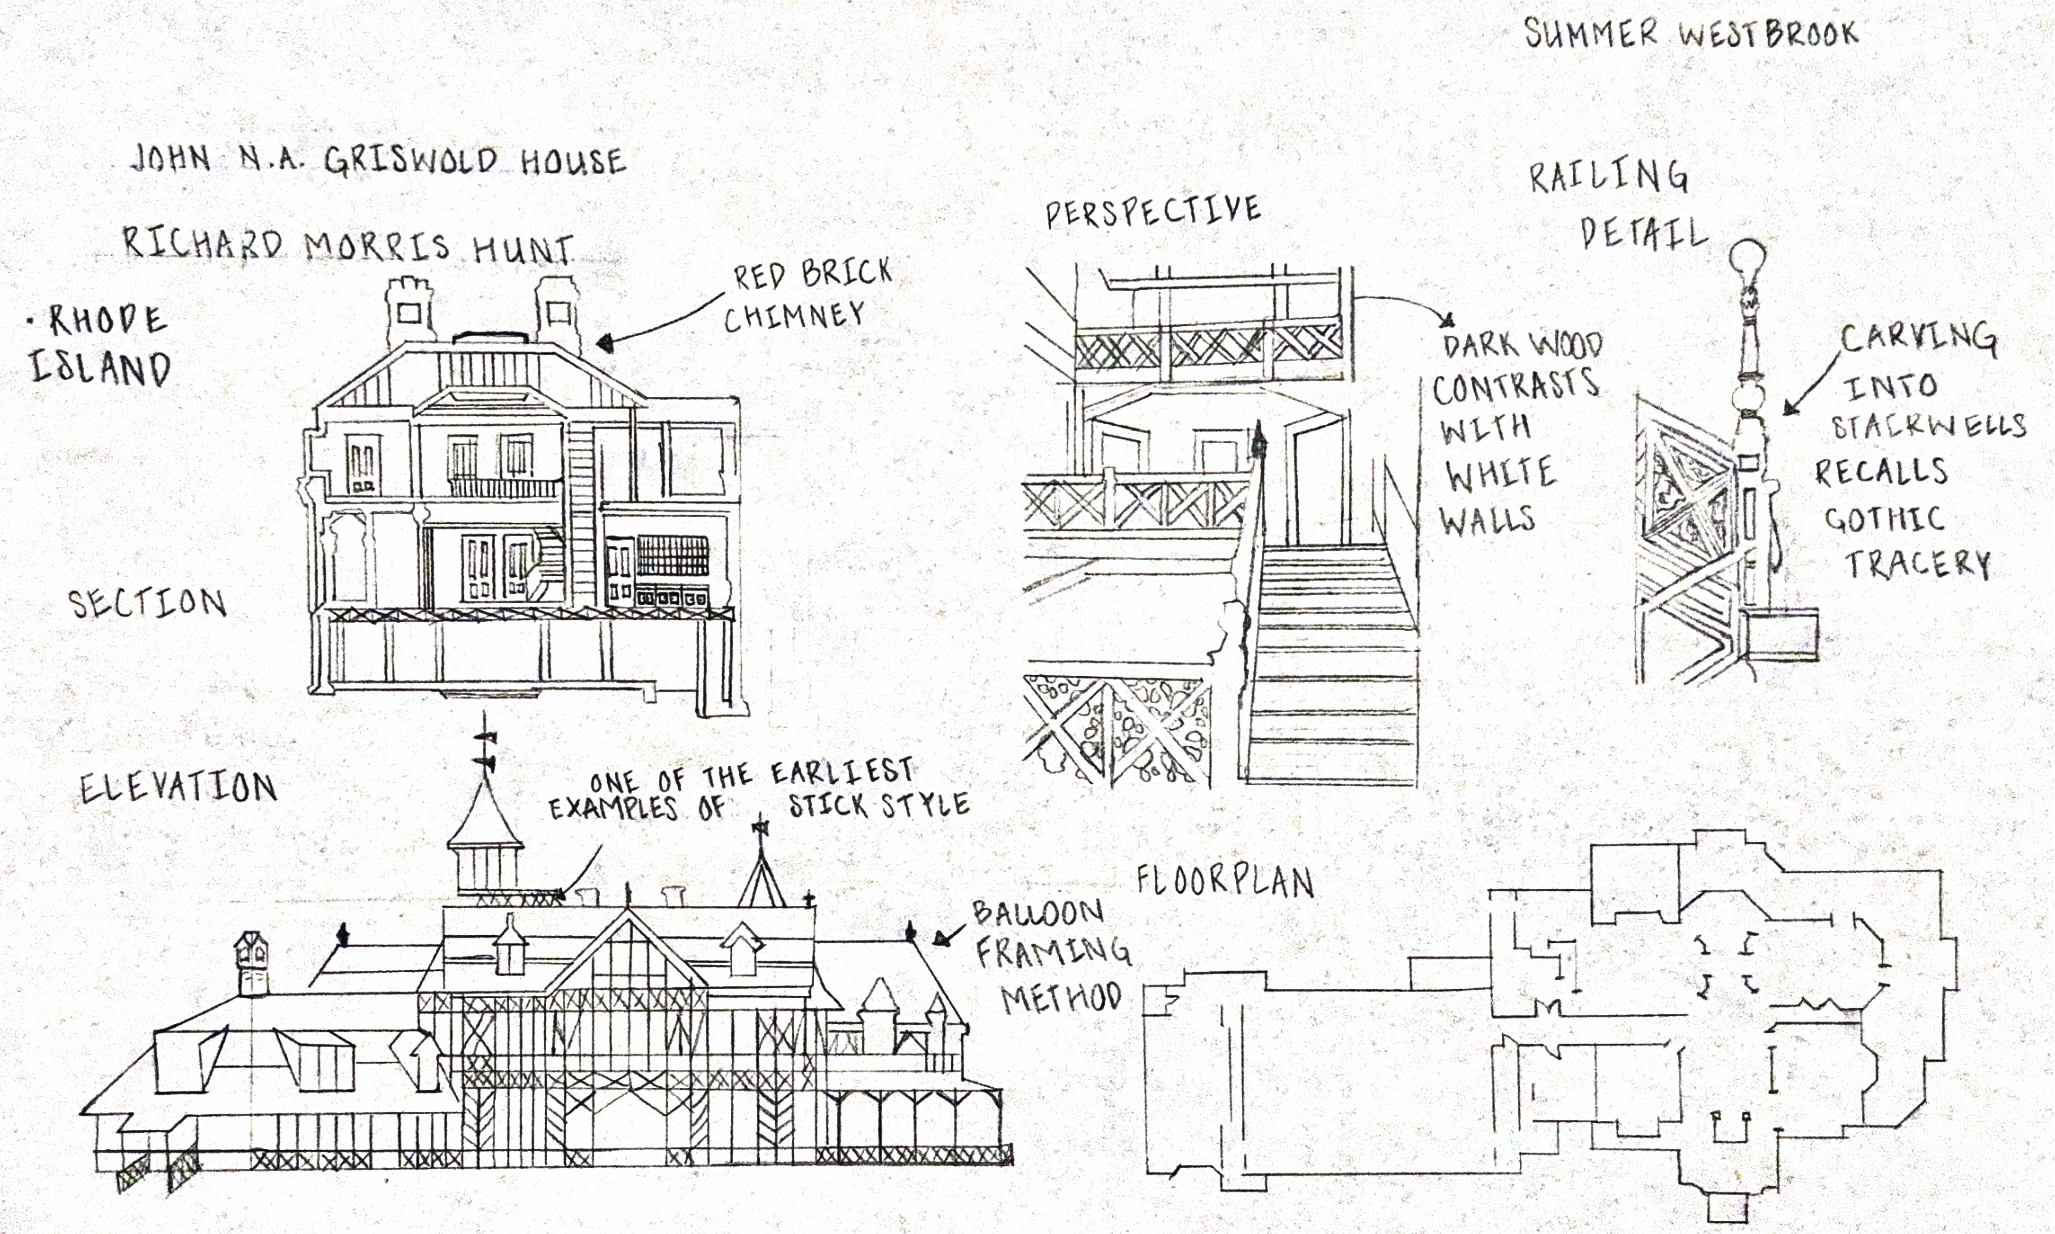 SUMMER WESTBROOK
JOHN N.A. GRISWOLD HOUSE
RICHARD MORRIS HUNT
• RHODE
ISLAND
RED BRICK
CHIMNEY
SECTION
PERSPECTIVE
DARK WOOD
CONTRASTS
WITH
WHITE
WALLS
RAILING
DETAIL
CARVING
INTO
STAIRWELLS
RECALLS
GOTHIC
TRACERY
ELEVATION
ONE OF THE EARLIEST
EXAMPLES OF STICK STYLE
BALLOON
FRAMING
METHOD
FLOORPLAN